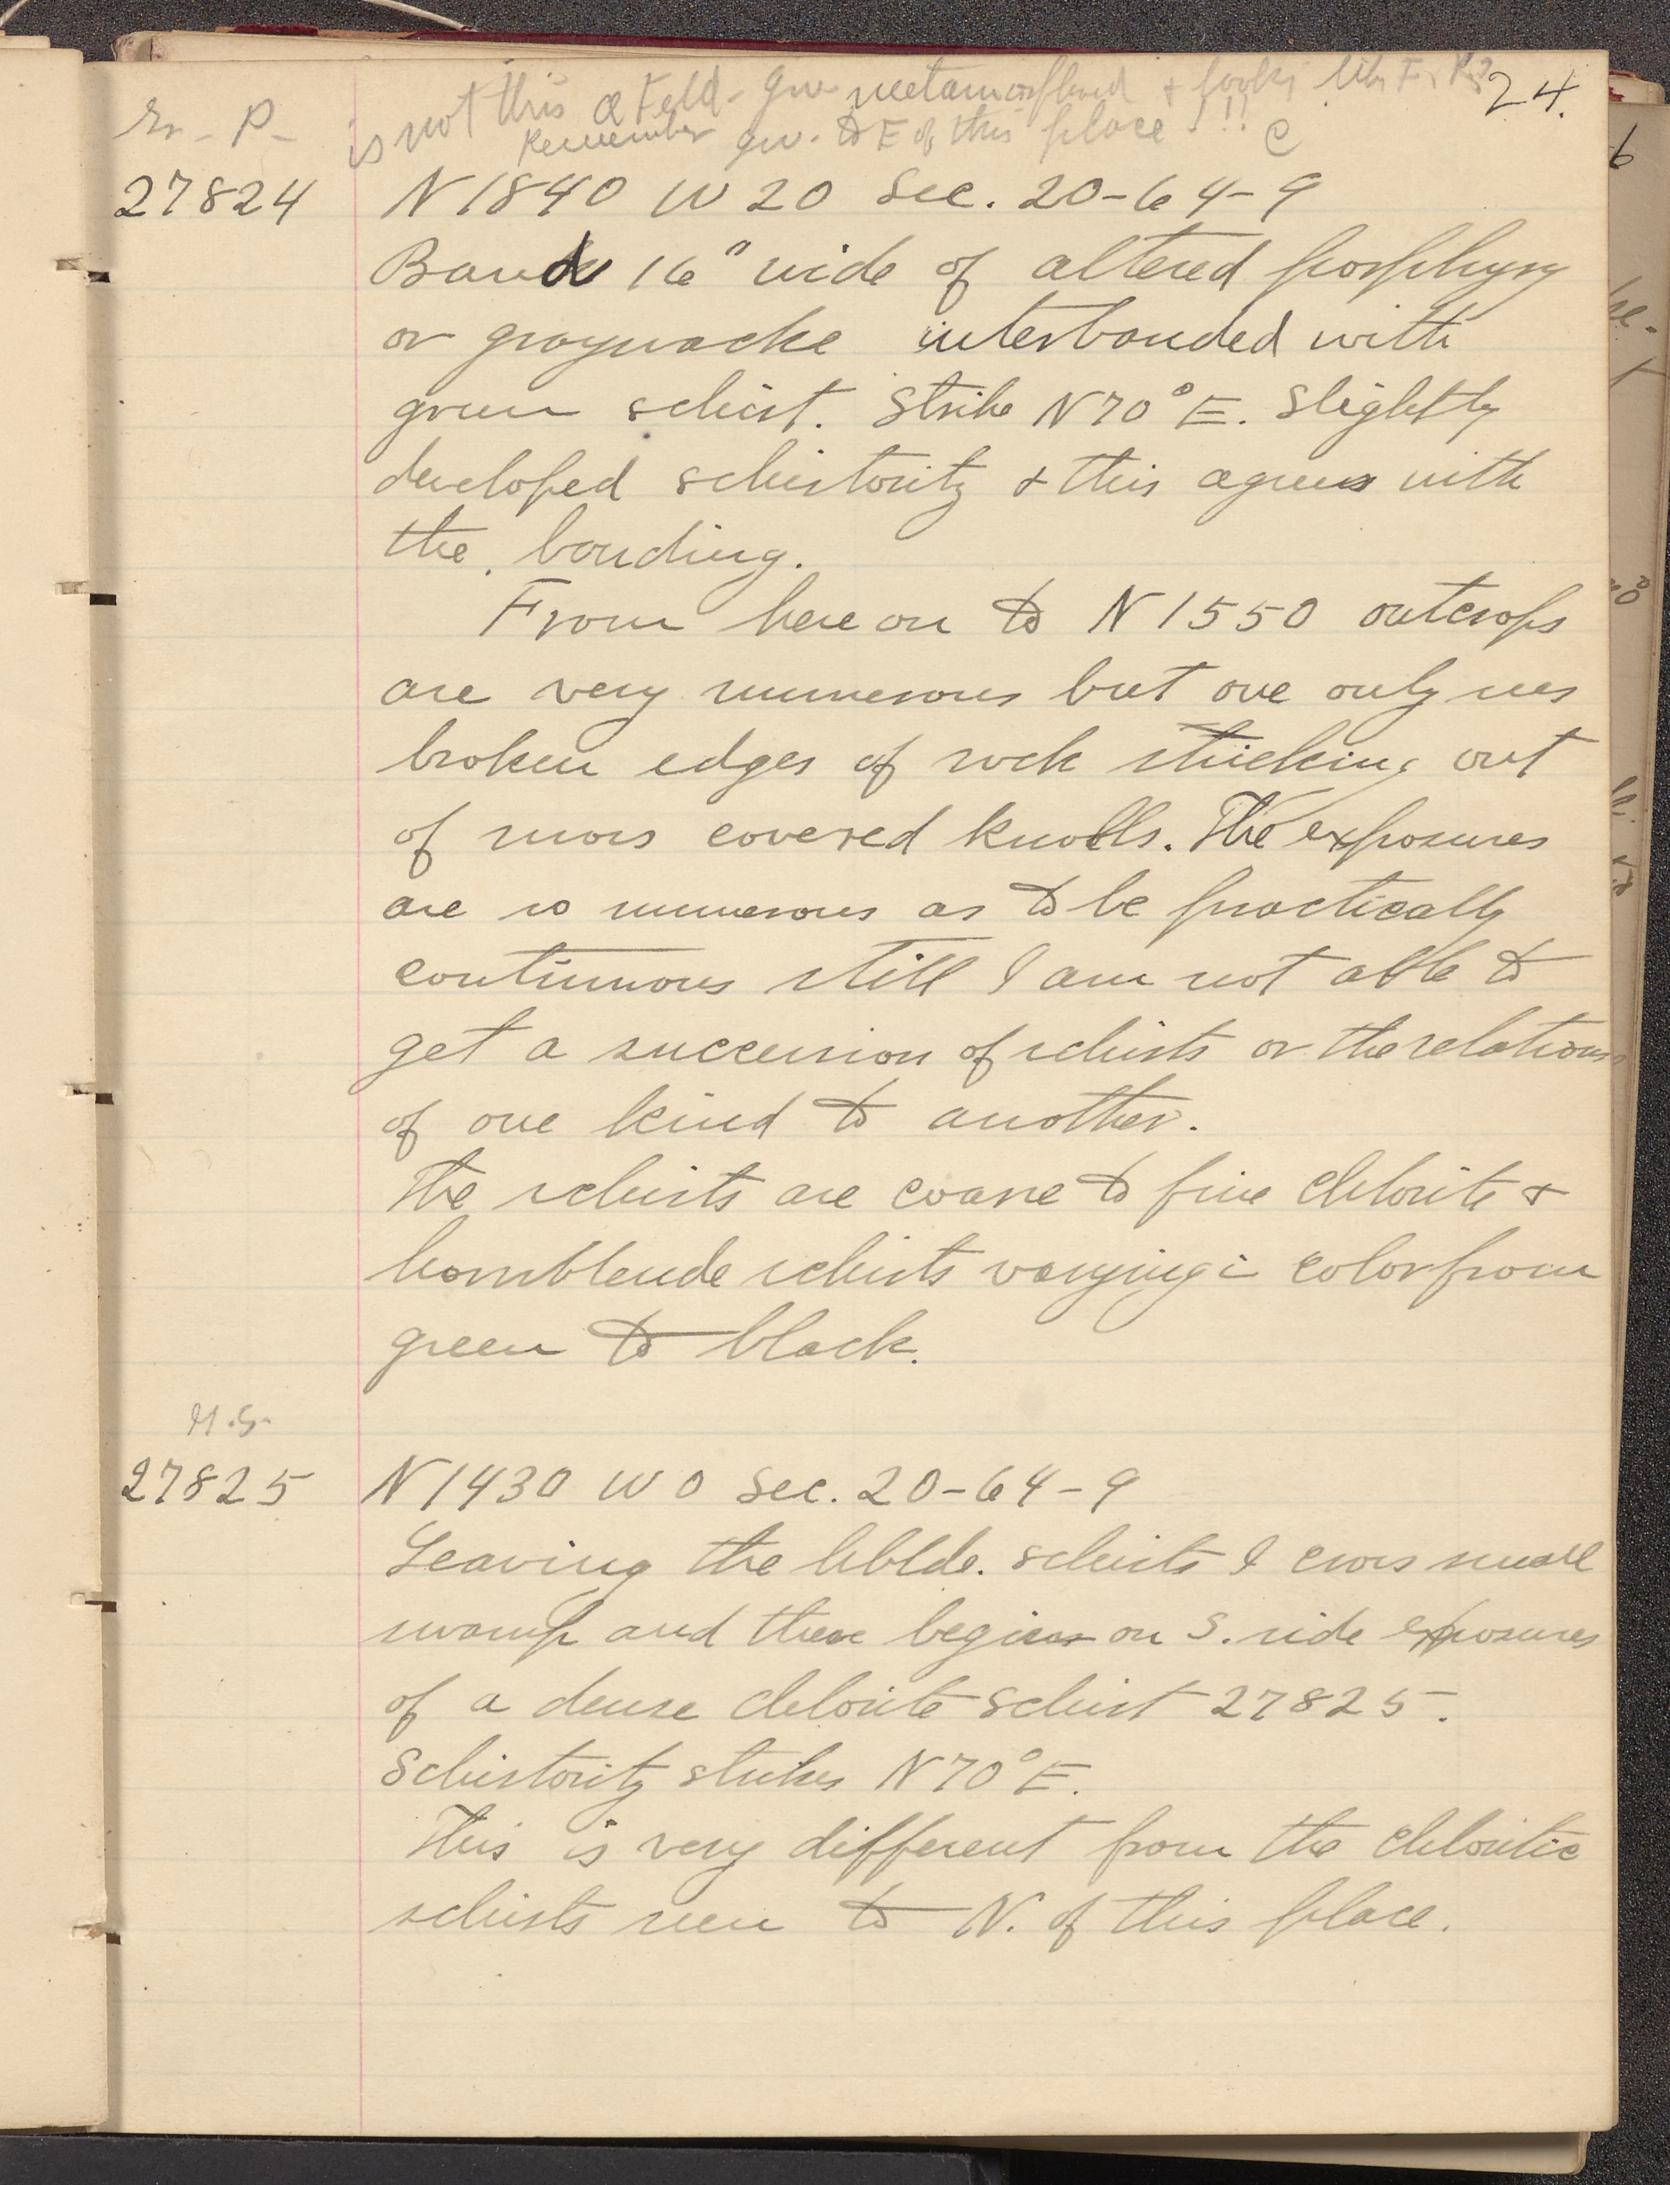 24.
is not this a Feld. gw metamorphosed & looks like F. P.?
Remember gw. to E of this place!!! C
27824 N 1840 W 20 Sec. 20-64-9
Band 16" wide of altered porphyry
or graywacke interbanded with
green schist. Strike N70°E. Slightly
developed schistosity & this agrees with
the banding.
From here on to N 1550 outcrops
are very numerous but one only sees
broken edges of rock sticking out
of moss covered knolls. The exposures
are so numerous as to be practically
continuous still I am not able to
get a succession of schists or the relations
of one kind to another.
The schists are coarse to fine chlorite &
hornblende schists varying in color from
green to black.
27825 N 1430 W 0 Sec. 20-64-9
Leaving the hblde. schists I cross small
swamp and there begins on S. side exposures
of a dense chlorite schist 27825.
Schistosity strikes N70°E.
This is very different from the chloritic
schists seen to N. of this place.